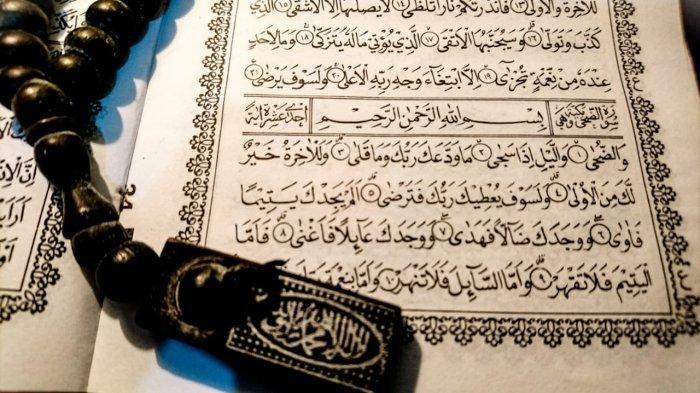 لَلْاٰخِرَةَ وَالْاُولٰى ۝١٣ فَاَنْذَرْتُكُمْ نَارًا تَلَظّٰى ۝١٤ لَا يَصْلٰىهَا اِلَّا الْاَشْقَى ۝١٥ الَّذِي
كَذَّبَ وَتَوَلّٰى ۝١٦ وَسَيُجَنَّبُهَا الْاَتْقَى ۝١٧ الَّذِي يُؤْتِي مَالَهُ يَتَزَكّٰى ۝١٨ وَمَا لِاَحَدٍ
عِنْدَهُ مِنْ نِعْمَةٍ تُجْزٰى ۝١٩ اِلَّا ابْتِغَاءَ وَجْهِ رَبِّهِ الْاَعْلٰى ۝٢٠ وَلَسَوْفَ يَرْضٰى ۝٢١
سُورَةُ الضُّحٰى مَكِّيَّةٌ وَهِيَ بِسْمِ اللهِ الرَّحْمٰنِ الرَّحِيْمِ اِحْدٰى عَشْرَةَ اٰيَةً
وَالضُّحٰى ۝١ وَالَّيْلِ اِذَا سَجٰى ۝٢ مَا وَدَّعَكَ رَبُّكَ وَمَا قَلٰى ۝٣ وَلَلْاٰخِرَةُ خَيْرٌ
لَكَ مِنَ الْاُولٰى ۝٤ وَلَسَوْفَ يُعْطِيكَ رَبُّكَ فَتَرْضٰى ۝٥ اَلَمْ يَجِدْكَ يَتِيمًا
فَاٰوٰى ۝٦ وَوَجَدَكَ ضَالًّا فَهَدٰى ۝٧ وَوَجَدَكَ عَائِلًا فَاَغْنٰى ۝٨ فَاَمَّا
الْيَتِيمَ فَلَا تَقْهَرْ ۝٩ وَاَمَّا السَّائِلَ فَلَا تَنْهَرْ ۝١٠ وَاَمَّا بِنِعْمَةِ